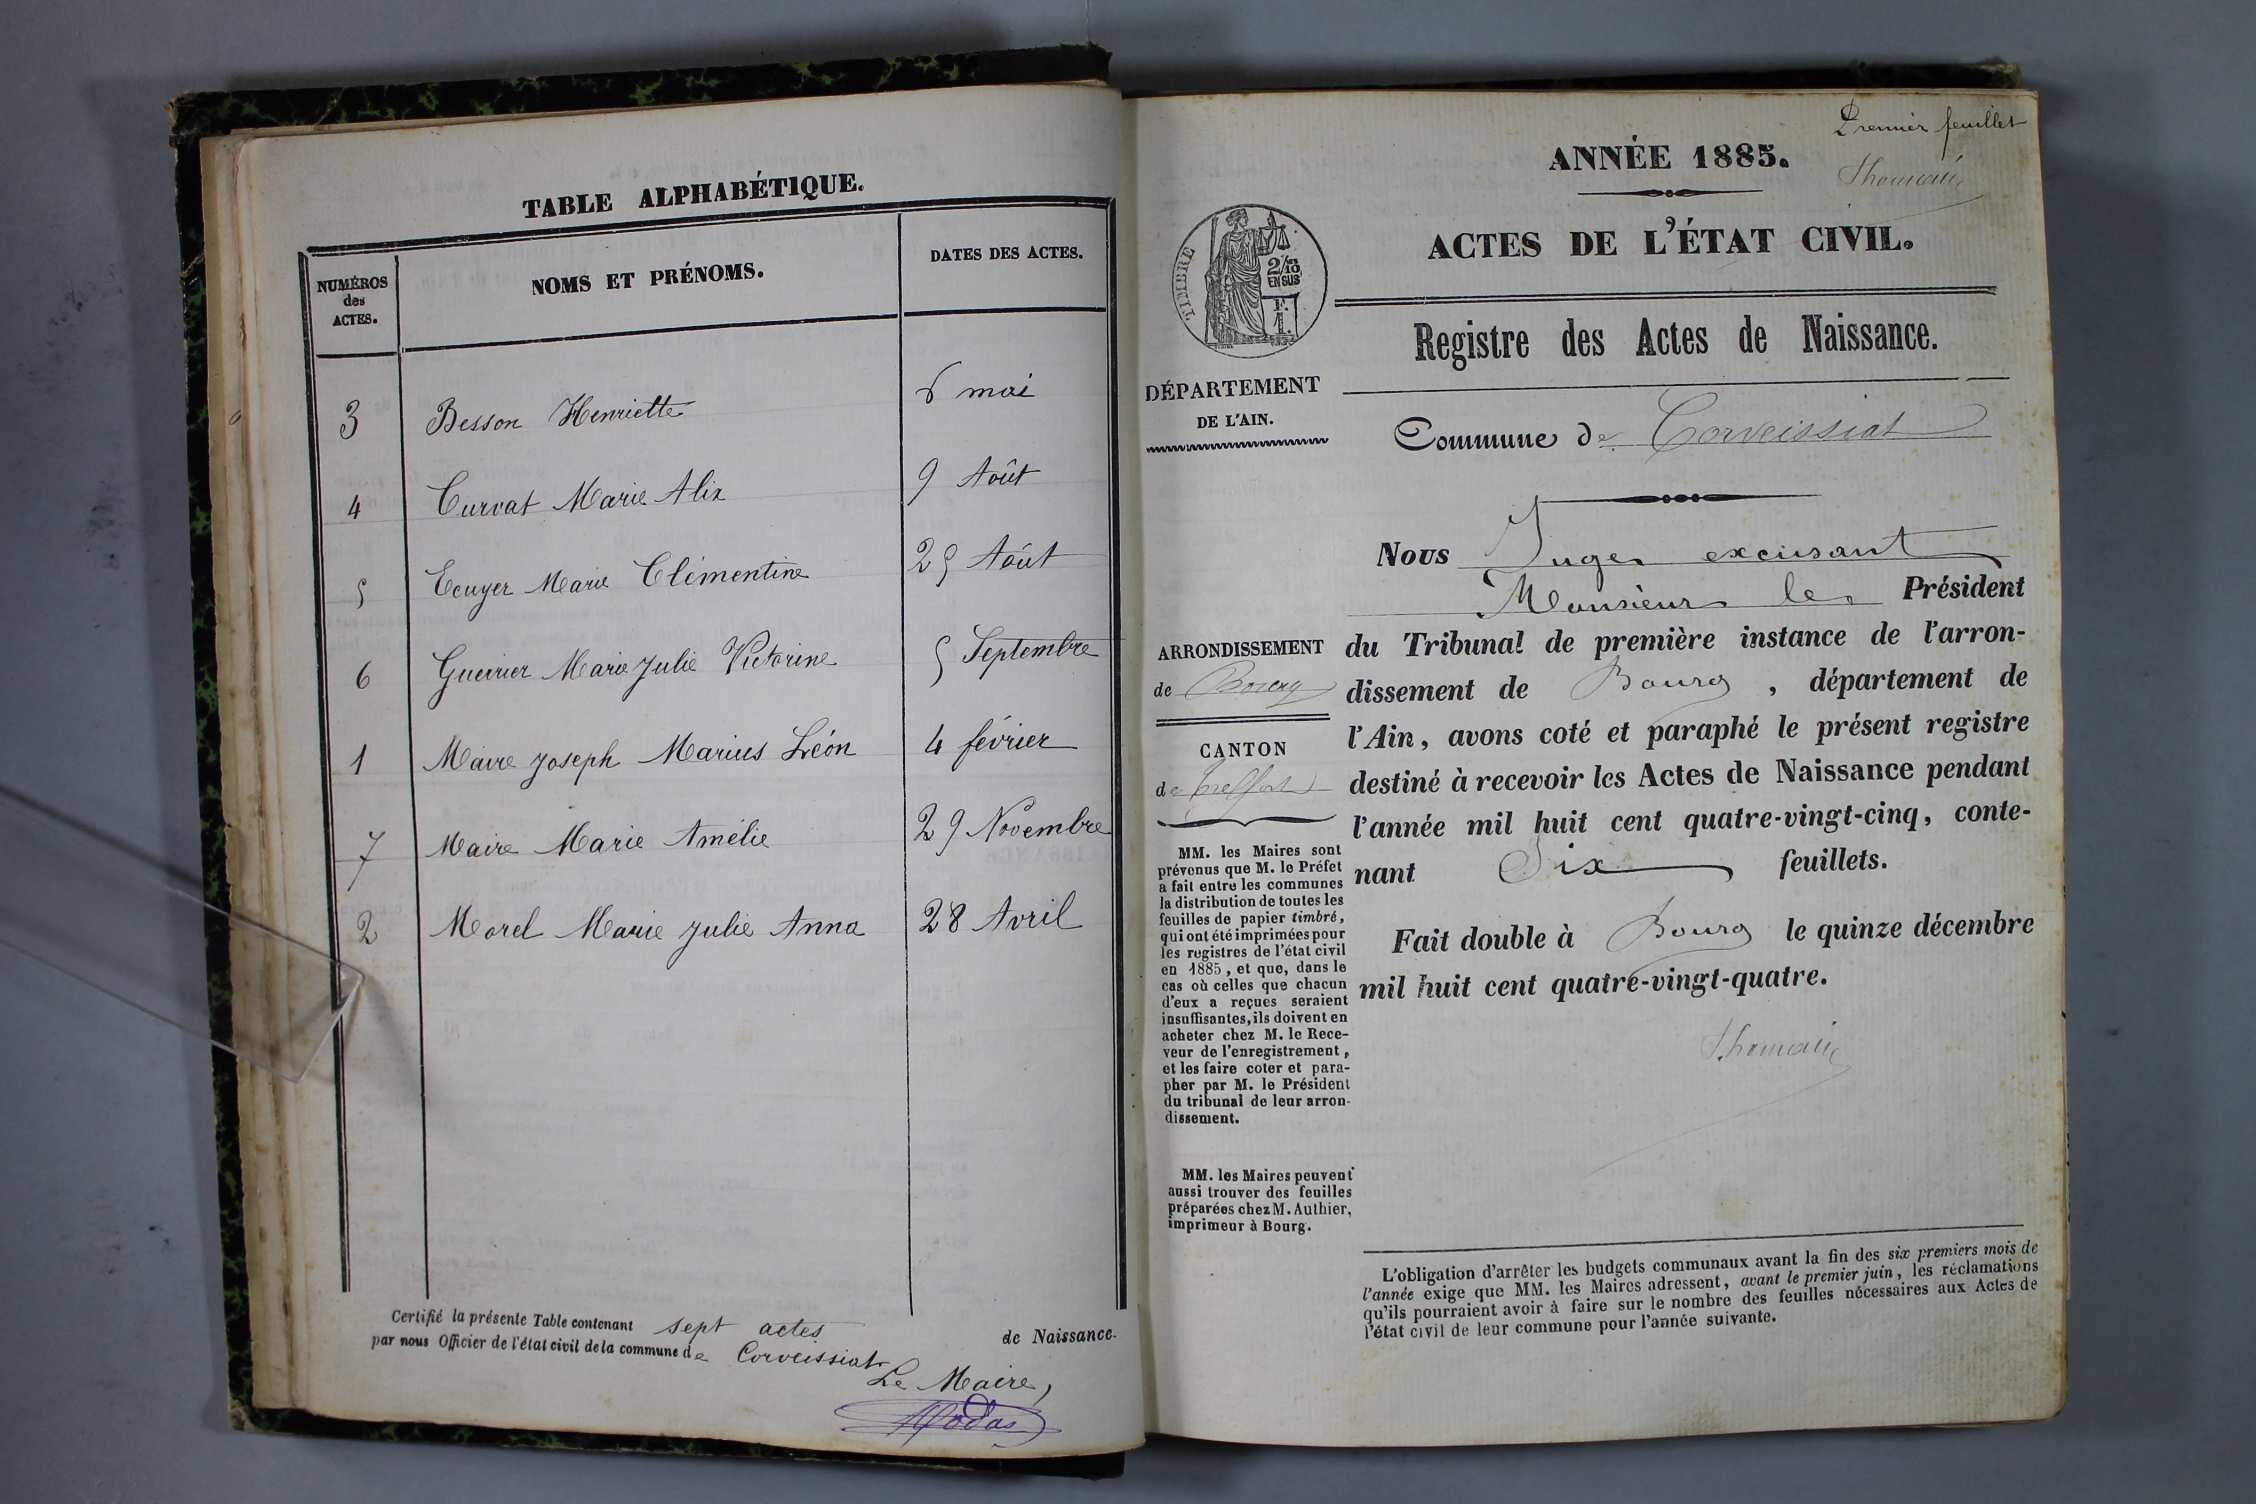 TABLE ALPHABÉTIQUE.
NUMÉROS
des
ACTES.
NOMS ET PRÉNOMS.
DATES DES ACTES.
3 Besson Henriette 6 mai
4 Curvat Marie Alix 9 Août
5 Ecuyer Marie Clémentine 25 Août
6 Guerrier Marie Julie Victorine 5 Septembre
1 Maire Joseph Marius Léon 4 février
7 Maire Marie Amélie 29 Novembre
2 Morel Marie Julie Anna 28 Avril
Certifié la présente Table contenant sept actes de Naissance
par nous Officier de l'état civil de la commune de Corveissiat
Le Maire,
Premier feuillet
ANNÉE 1885.
ACTES DE L'ÉTAT CIVIL.
TIMBRE
2/10
EN SUS
F.
1.
Registre des Actes de Naissance.
DÉPARTEMENT
DE L'AIN.
Commune de Corveissiat
Nous Juge excusant
Monsieur le Président
du Tribunal de première instance de l'arron-
dissement de Bourg, département de
l'Ain, avons coté et paraphé le présent registre
destiné à recevoir les Actes de Naissance pendant
l'année mil huit cent quatre-vingt-cinq, conte-
nant Six feuillets.
Fait double à Bourg le quinze décembre
mil huit cent quatre-vingt-quatre.
ARRONDISSEMENT
de Bourg
CANTON
de Treffort
MM. les Maires sont
prévenus que M. le Préfet
a fait entre les communes
la distribution de toutes les
feuilles de papier timbré,
qui ont été imprimées pour
les registres de l'état civil
en 1885, et que, dans le
cas où celles que chacun
d'eux a reçues seraient
insuffisantes, ils doivent en
acheter chez M. le Rece-
veur de l'enregistrement,
et les faire coter et para-
pher par M. le Président
du tribunal de leur arron-
dissement.
MM. les Maires peuvent
aussi trouver des feuilles
préparées chez M. Authier,
imprimeur à Bourg.
L'obligation d'arrêter les budgets communaux avant la fin des six premiers mois de
l'année exige que MM. les Maires adressent, avant le premier juin, les réclamations
qu'ils pourraient avoir à faire sur le nombre des feuilles nécessaires aux Actes de
l'état civil de leur commune pour l'année suivante.